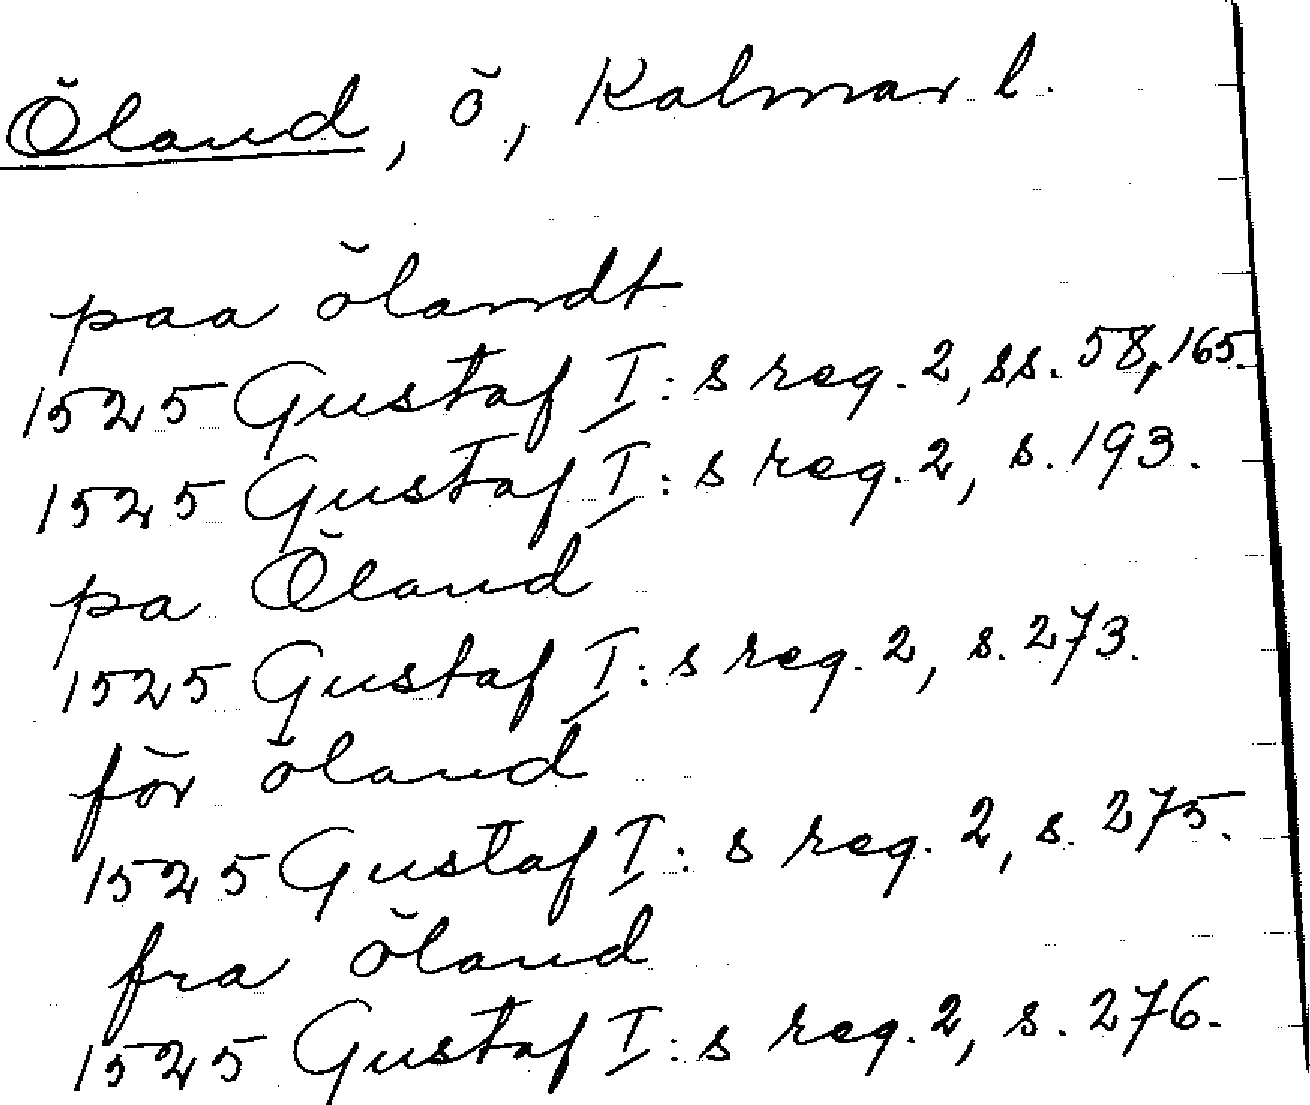 Öland, ö, Kalmar l.
paa ölandt
1525 Gustaf I:s reg. 2, ss. 58, 165.
1525 Gustaf I:s reg. 2, s. 193.
pa Öland
1525 Gustaf I:s reg. 2, s. 273.
för öland
1525 Gustaf I:s reg. 2, s. 275.
fra öland
1525 Gustaf I:s reg. 2, s. 276.